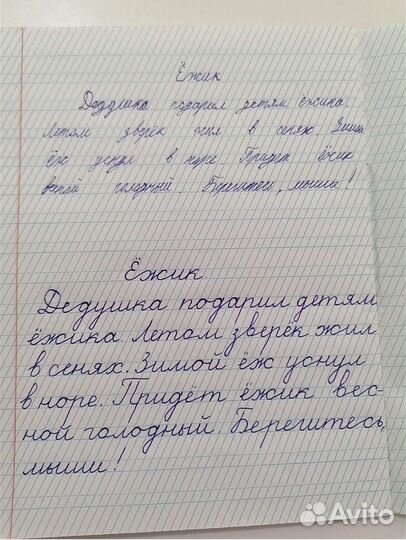 Ёжик
Дедушка подарил детям ёжика.
Летом зверёк жил в сенях. Зимой
ёж уснул в норе. Придёт ёжик
весной голодный. Берегитесь, мыши!
Ёжик.
Дедушка подарил детям
ёжика. Летом зверёк жил
в сенях. Зимой ёж уснул
в норе. Придёт ёжик вес-
ной голодный. Берегитесь,
мыши!
Avito